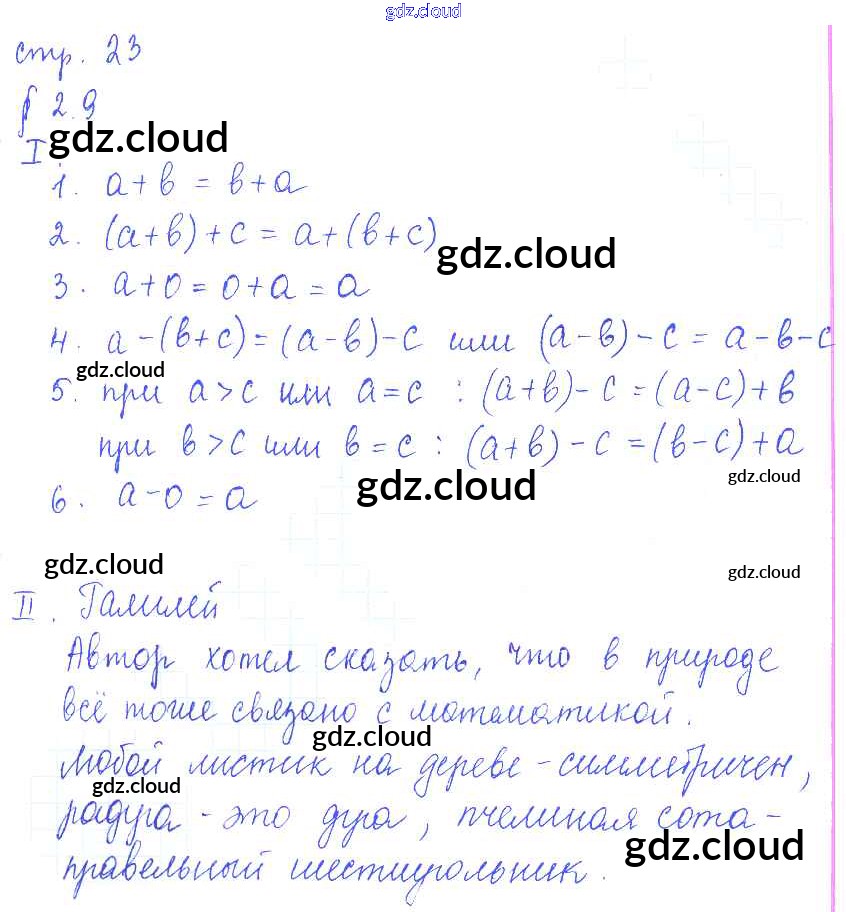 gdz.cloud
стр. 23
§ 2.9
gdz.cloud
I
1. a+b = b+a
2. (a+b)+c = a+(b+c)
gdz.cloud
3. a+0 = 0+a = a
4. a-(b+c) = (a-b)-c или (a-b)-c = a-b-c
gdz.cloud
5. при a>c или a=c : (a+b)-c = (a-c)+b
при b>c или b=c : (a+b)-c = (b-c)+a
gdz.cloud
gdz.cloud
6. a-0 = a
gdz.cloud
gdz.cloud
II. Галилей
Автор хотел сказать, что в природе
всё тоже связано с математикой.
gdz.cloud
Любой листик на дереве - симметричен,
gdz.cloud
радуга - это дуга, пчелиная сота -
gdz.cloud
правельный шестиугольник.